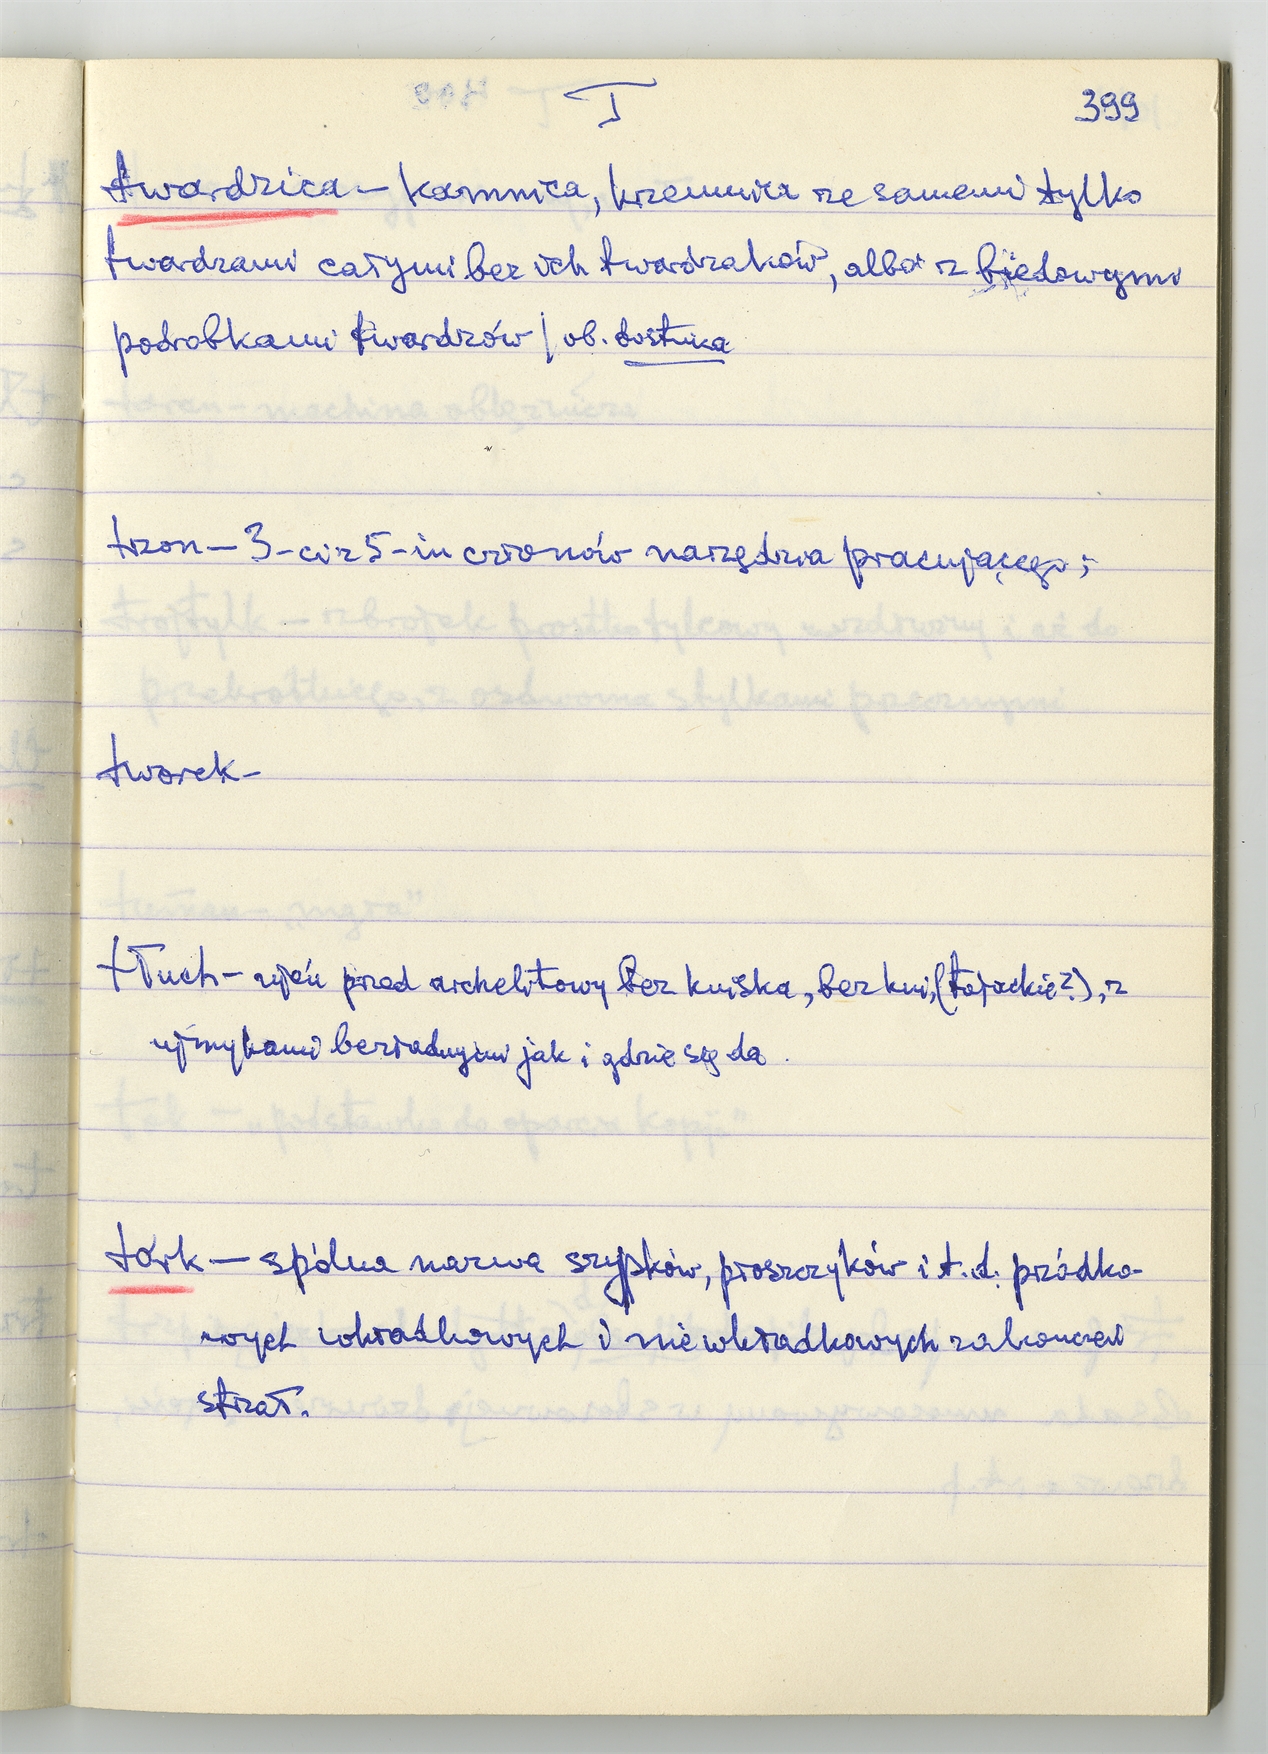 T 399
twardzica – kamnica, krzemnica ze samemi tylko
twardzami całymi bez ich twardzaków, albo z biedowymi
podrobkami twardzów / ob.
trzon – 3-ci z 5-iu członów narzędzia pracującego;
tworek –
tłuch – ujęń przed archelitowy bez kuiska, bez kui,
ujmykami bezładnymi jak i gdzie się da.
tórk – spólna nazwa szypków, proszczyków i t.d. przódko-
wych wkładkowych i niewkładkowych zakończeń
strzał.